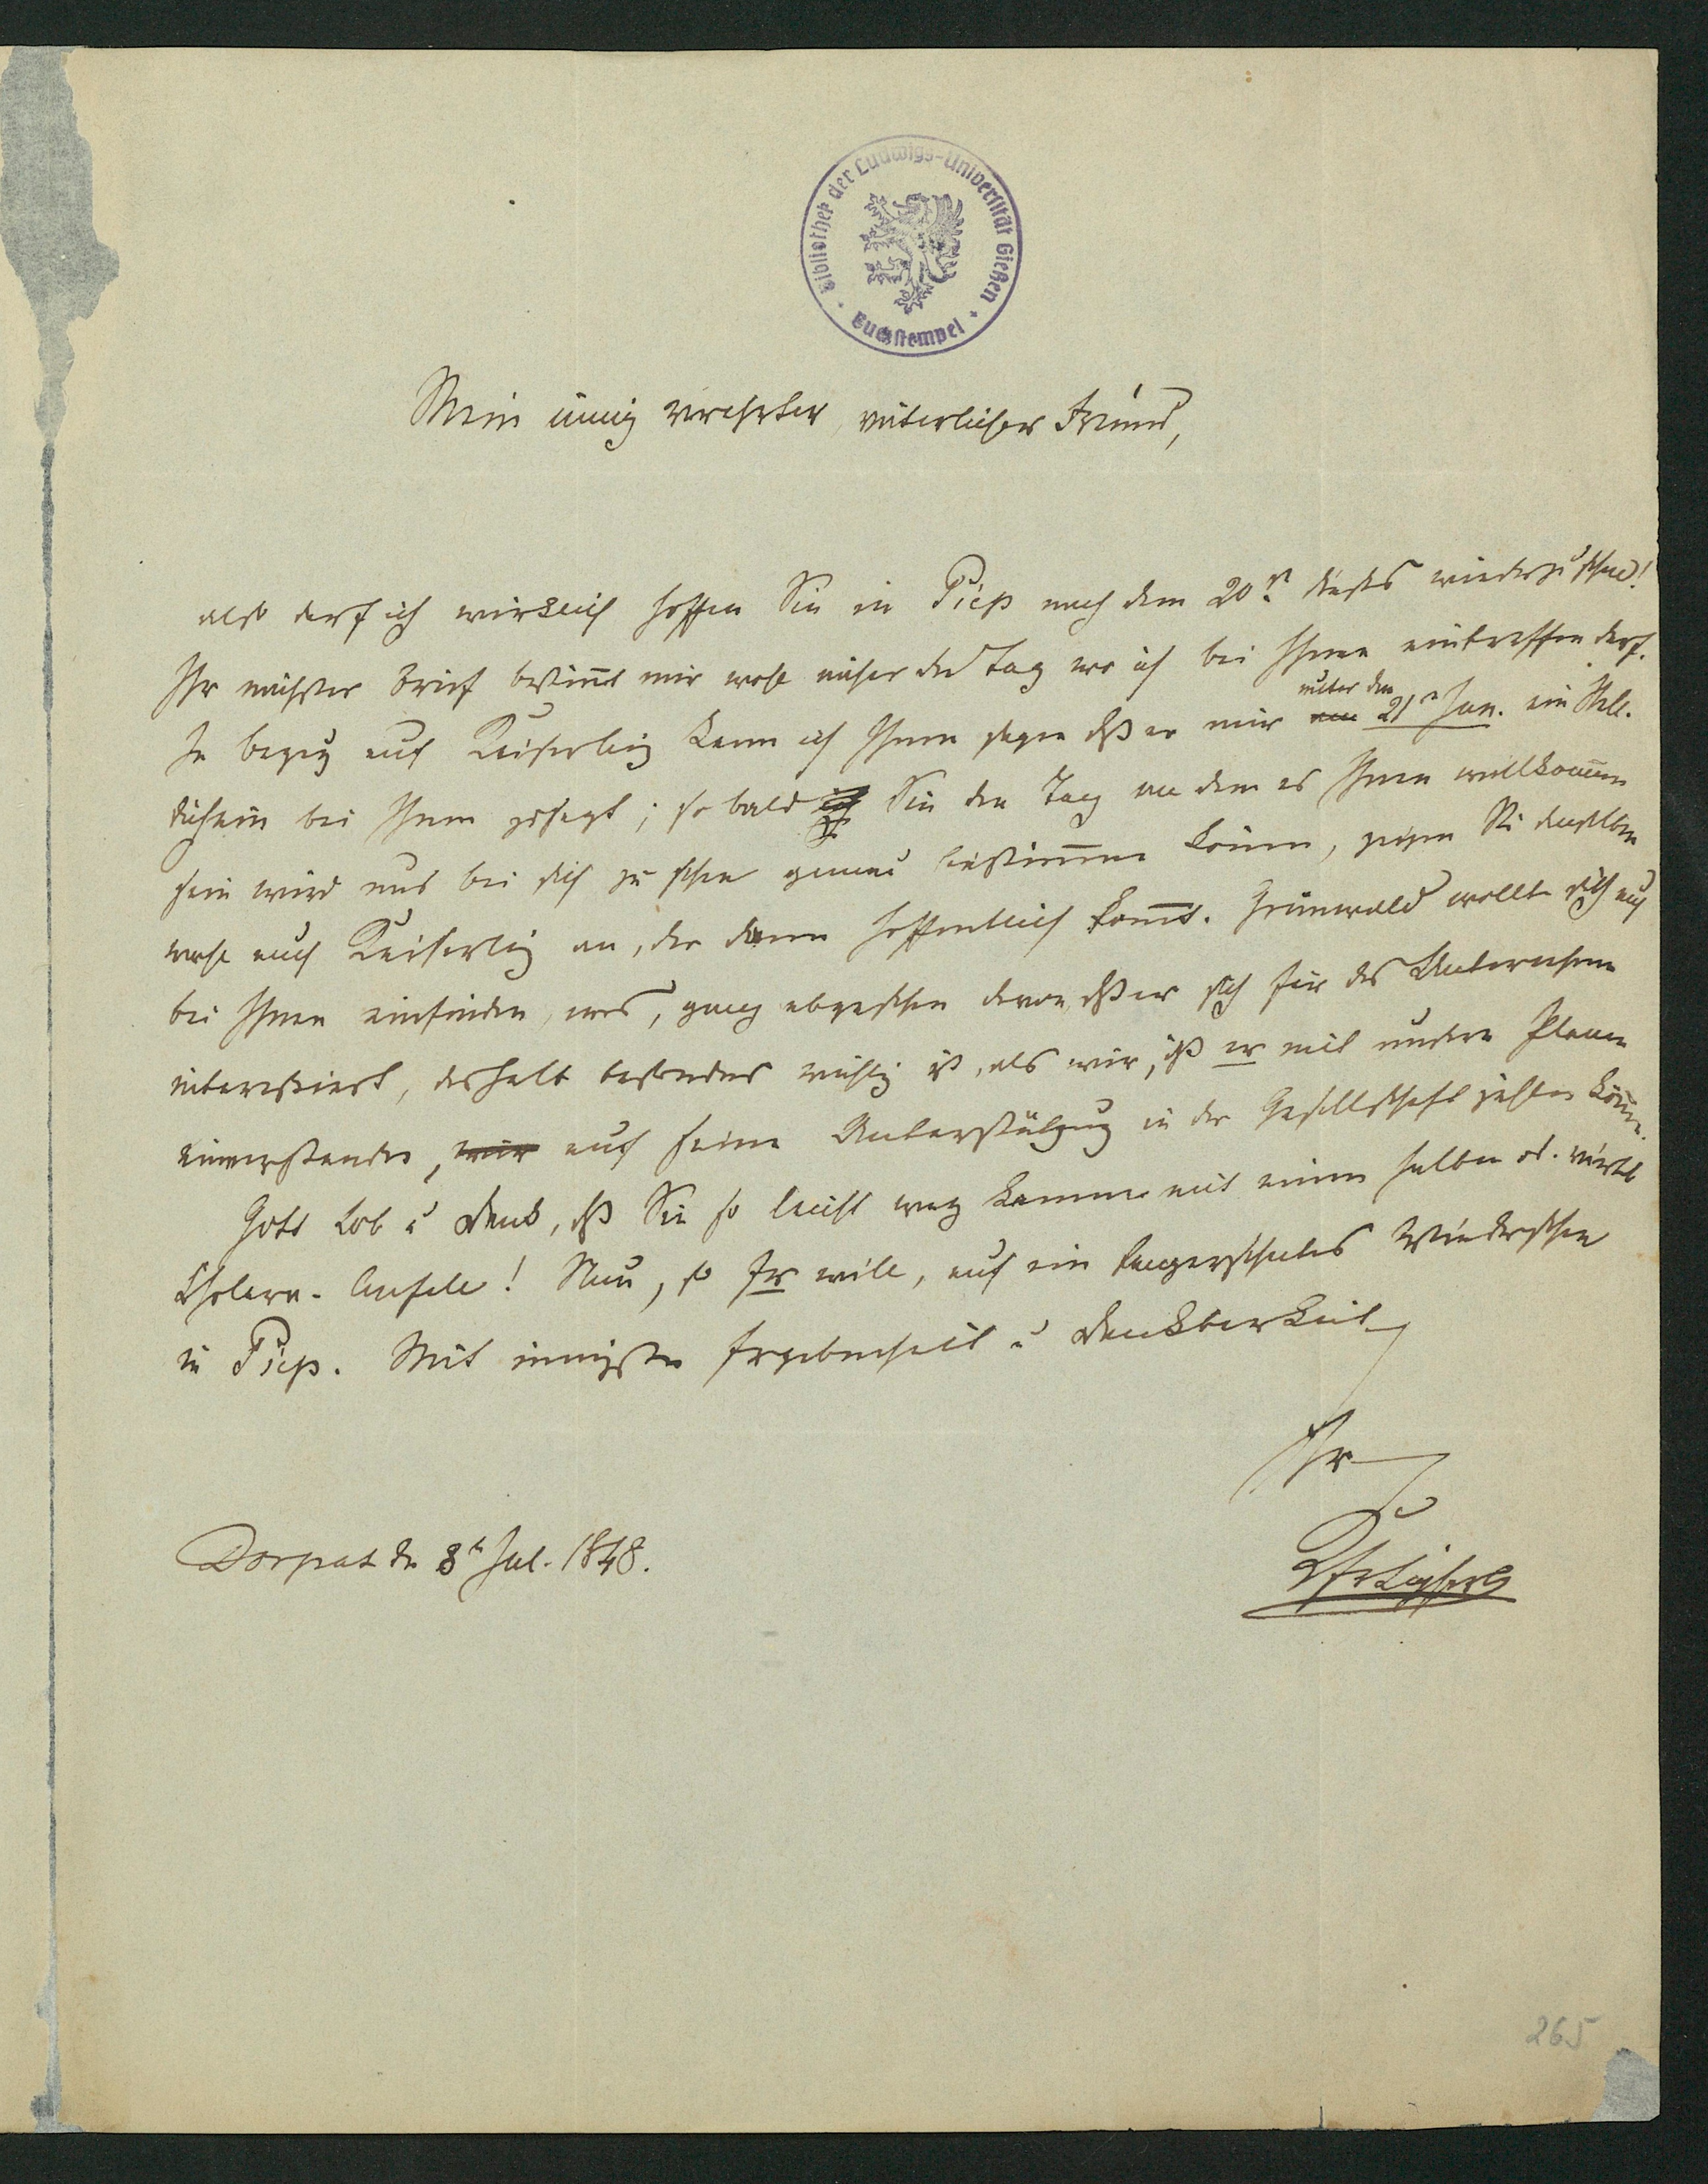 Bibliothek der Ludwigs-Universität Gießen
Buchstempel
Mein innig verehrter, väterlicher Freund,
also darf ich wirklich hoffen Sie in Piep nach dem 20st dieses wiederzusehen!
Ihr nächster Brief bestimt mir wohl näher den Tag wo ich bei Ihnen eintreffen darf.
In bezug auf Keiserling kann ich Ihnen sagen dß er mir am unter dem 21n Jun. ein Stell-
dichein bei Ihnen gesagt; so bald ich Sie den Tag an dem es Ihnen willkommen
sein wird uns bei sich zu sehen genau bestimmen können, zeigen Sie denselben
wohl auch Keiserling an, der dann hoffentlich komt. Grünwald wollte sich auch
bei Ihnen einfinden, was, ganz abgesehen davon, dß er sich für das Unternehmen
interessiert, deshalb besonders wichtig ist, als wir, ist er mit unsern Planen
einverstanden, wir auf seine Unterstützung in der Gesellschaft zählen könen.
Gott Lob u Dank, dß Sie so leicht weg kamen mit einem halben od. viertel
Cholera-Anfall! Nun, so Er will, auf ein langersehntes Wiedersehen
in Piep. Mit innigster Ergebenheit u Dankbarkeit
Ihr
Dorpat dn 8t Jul. 1848.
265